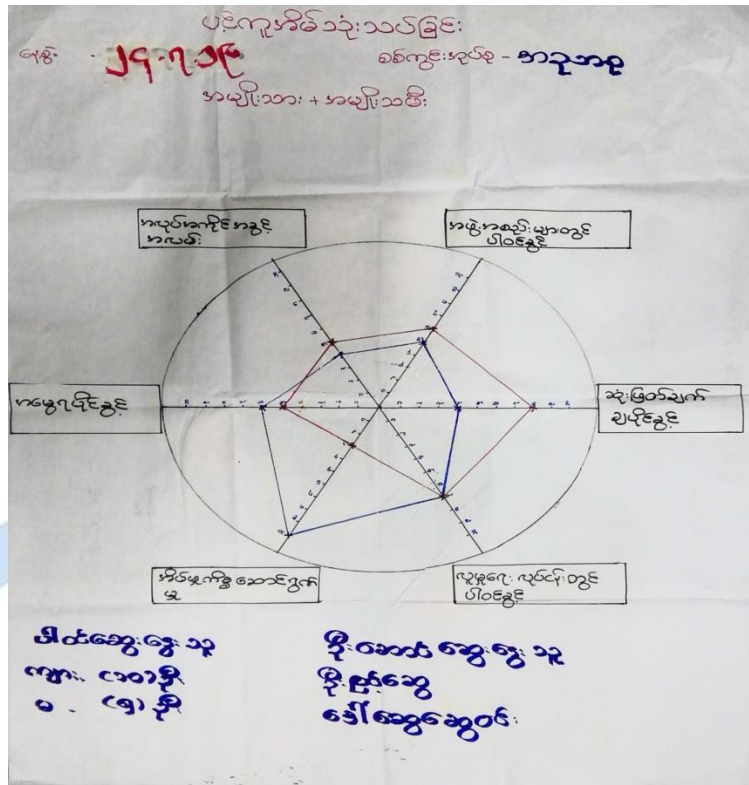 ပင့်ကူအိမ်သုံးသပ်ခြင်း
နေ့စွဲ - ၂၄.၇.၁၉ စစ်ကွင်းအုပ်စု - အညာအစု
အမျိုးသား + အမျိုးသမီး
အလုပ်အကိုင်အခွင့်
အလမ်း
အဖွဲ့အစည်းများတွင်
ပါဝင်ခွင့်
အမွေရပိုင်ခွင့်
ဆုံးဖြတ်ချက်
ချပိုင်ခွင့်
အိမ်မှုကိစ္စဆောင်ရွက်
မှု
လူမှုရေးလုပ်ငန်းတွင်
ပါဝင်ခွင့်
ပါဝင်ဆွေးနွေးသူ
ကျား - (၁၀) ဦး
မ - (၅) ဦး
ဦးဆောင်ဆွေးနွေးသူ
ဦးညွန့်ဆွေ
ဒေါ်ဆွေဆွေဝင်း